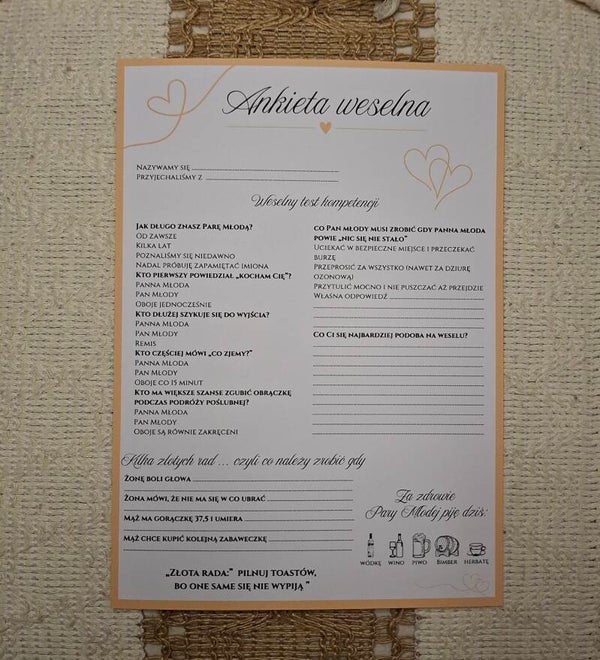 Ankieta weselna
Nazywamy się
Przyjechaliśmy z
Weselny test kompetencji
Jak długo znasz Parę Młodą?
Od zawsze
Kilka lat
Poznaliśmy się niedawno
Nadal próbuję zapamiętać imiona
Kto pierwszy powiedział „kocham Cię”?
Panna Młoda
Pan Młody
Oboje jednocześnie
Kto dłużej szykuje się do wyjścia?
Panna Młoda
Pan Młody
Remis
Kto częściej mówi „co zjemy?”
Panna Młoda
Pan Młody
Oboje co 15 minut
Kto ma większe szanse zgubić obrączkę
podczas podróży poślubnej?
Panna Młoda
Pan Młody
Oboje są równie zakręceni
Co Pan młody musi zrobić gdy panna młoda
powie „nic się nie stało”
Uciekać w bezpieczne miejsce i przeczekać
burzę
Przeprosić za wszystko (nawet za dziurę
ozonową)
Przytulić mocno i nie puszczać aż przejdzie
Własna odpowiedź
Co Ci się najbardziej podoba na weselu?
Kilka złotych rad ... czyli co należy zrobić gdy
Żonę boli głowa
Żona mówi, że nie ma się w co ubrać
Mąż ma gorączkę 37,5 i umiera
Mąż chce kupić kolejną zabaweczkę
Za zdrowie
Pary Młodej piję dziś:
wódkę wino piwo bimber herbatę
„Złota rada:” pilnuj toastów,
bo one same się nie wypiją ”